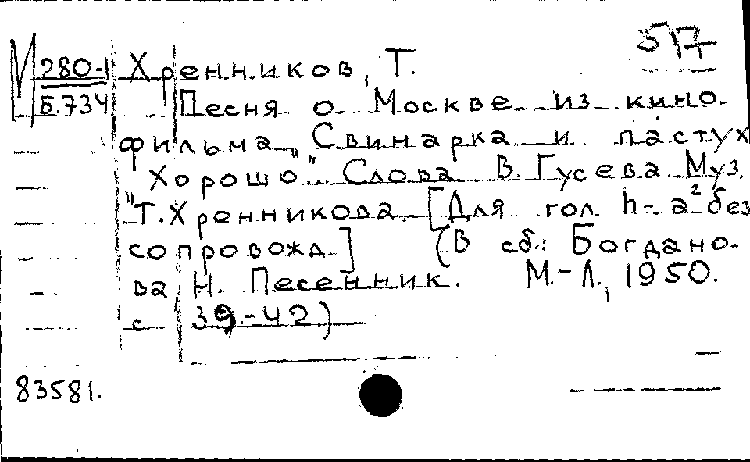 517
М 280-1 Хренников, Т.
Б.734 Песня о Москве из кино-
фильма „Свинарка и пастух
"Хорошо". Слова В. Гусева Муз.
Т. Хренникова [Для гол. h-a² без
сопровожд.] (В сб.: Богдано-
ва Н. Песенник. М.-Л., 1950.
с 39-42)
83581.